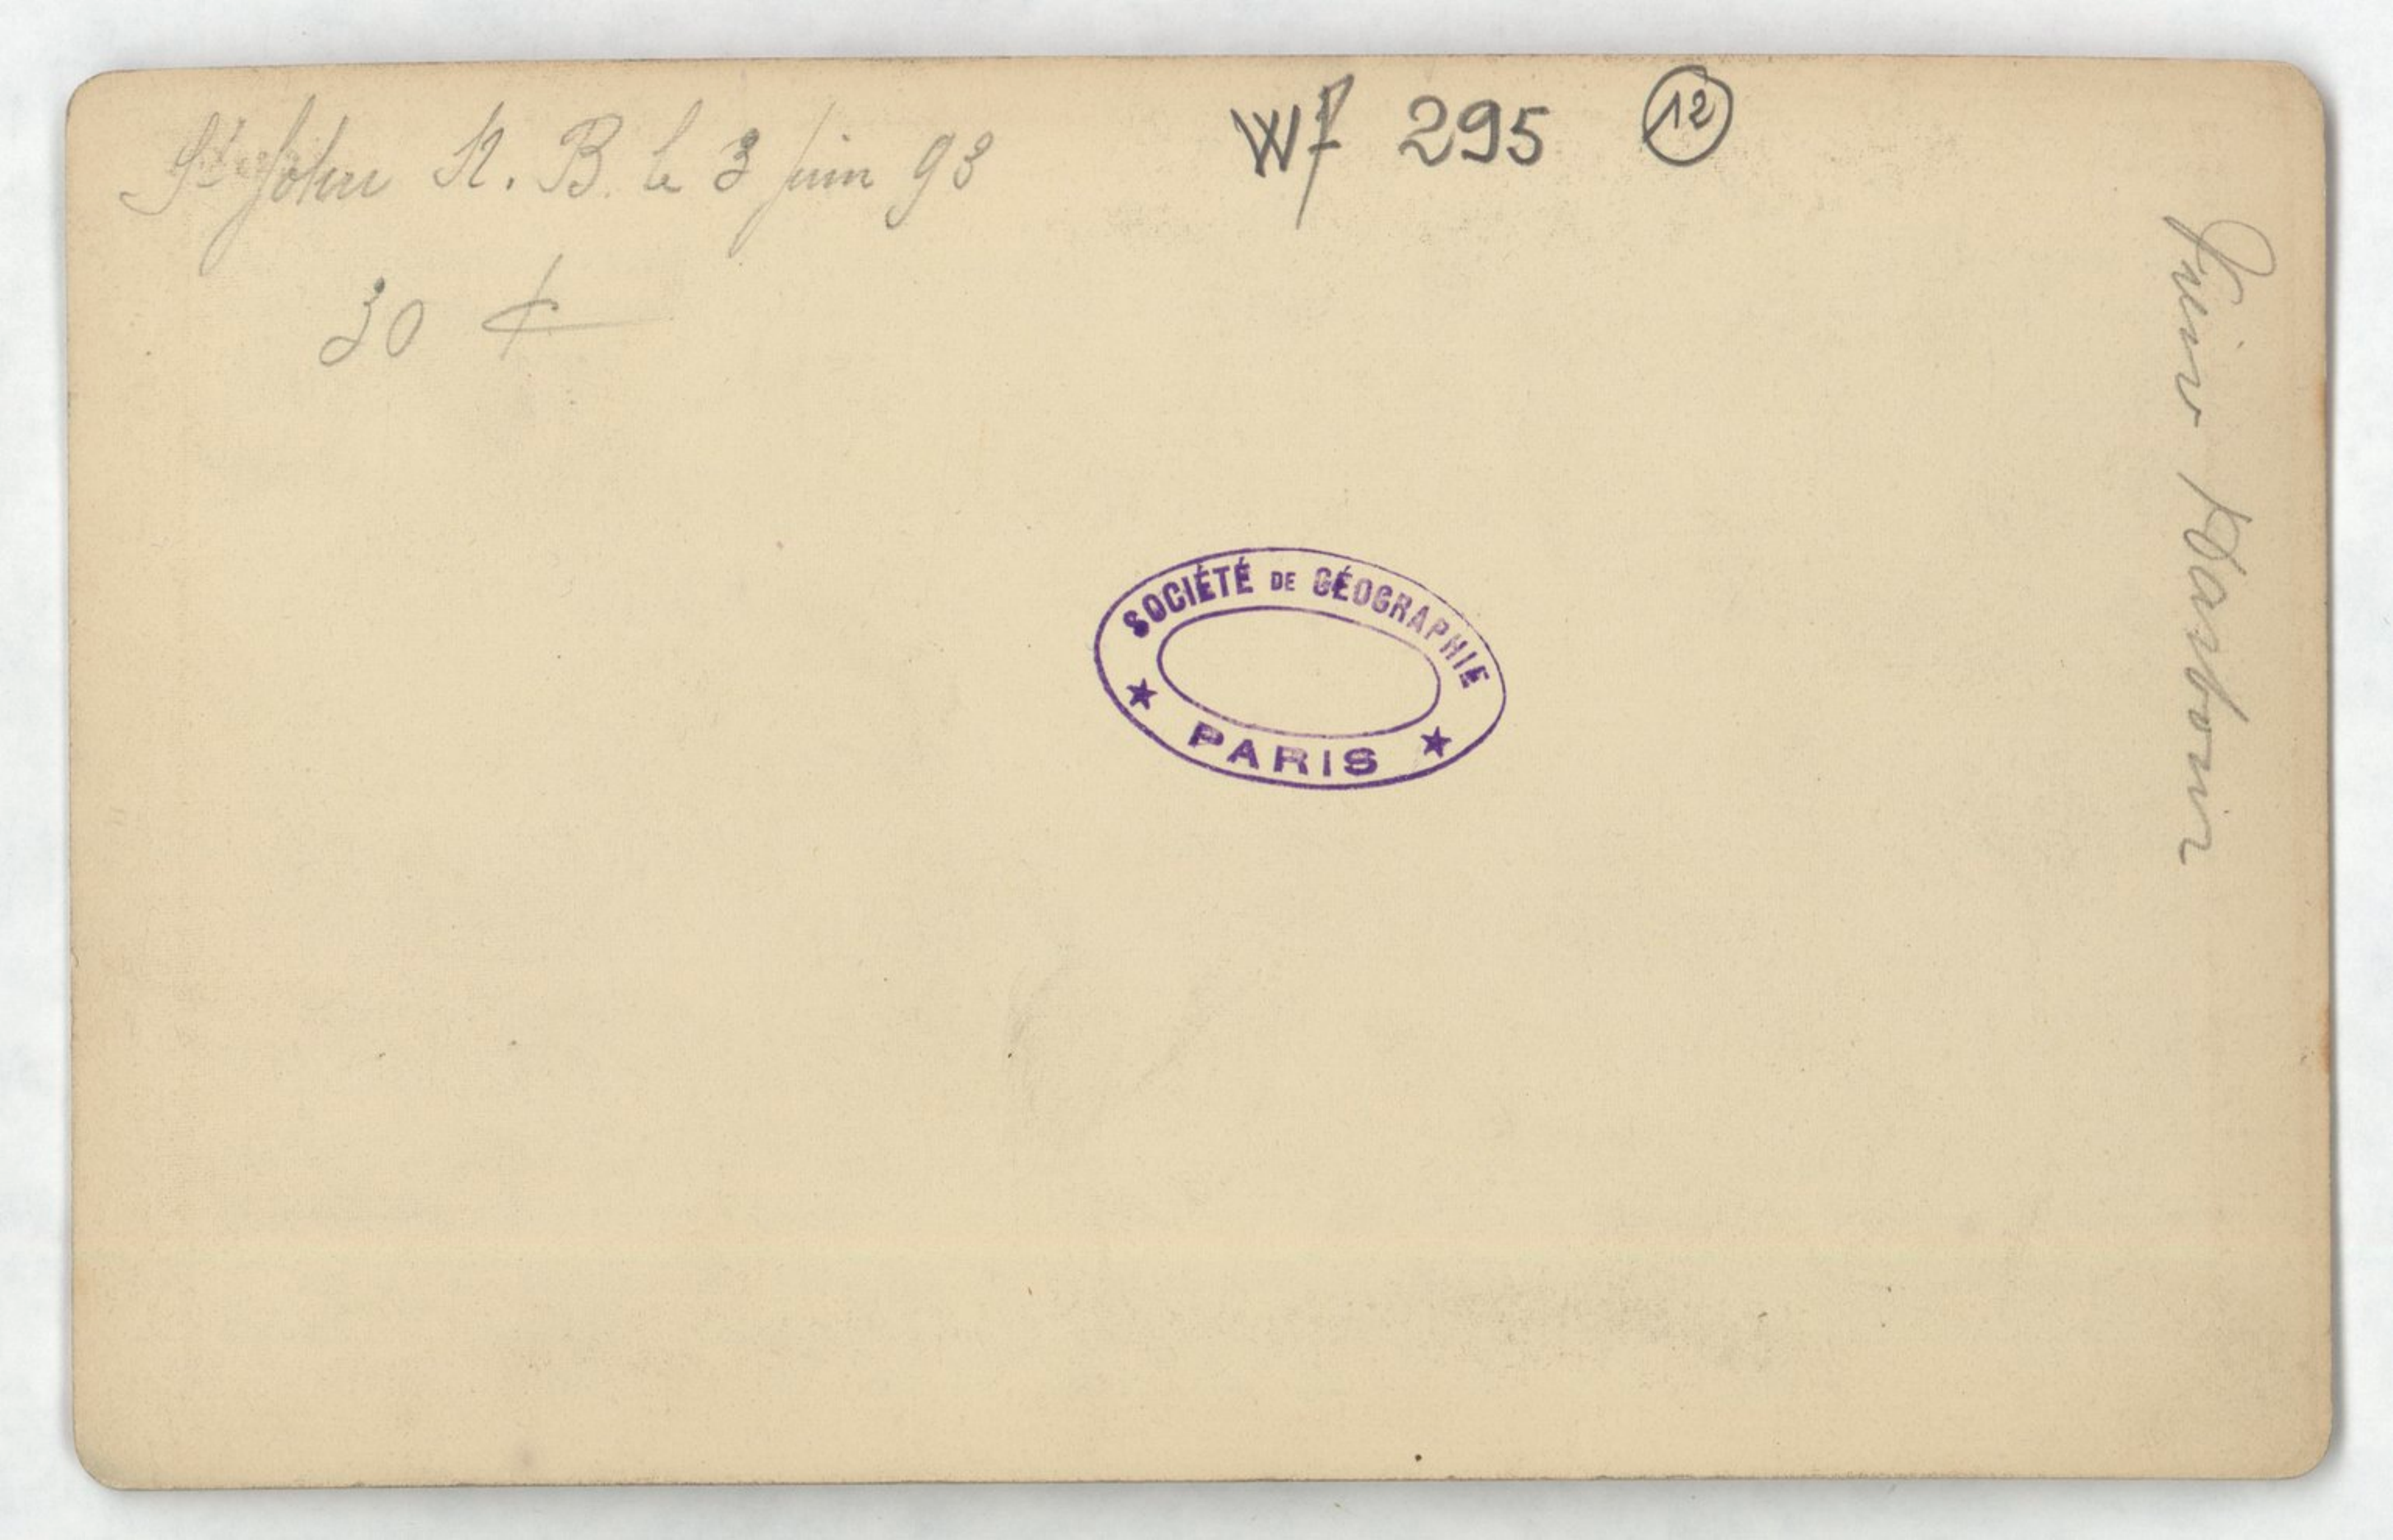 St John N. B. le 3 juin 93
30 ¢
Wf 295 12
SOCIÉTÉ DE GÉOGRAPHIE
PARIS